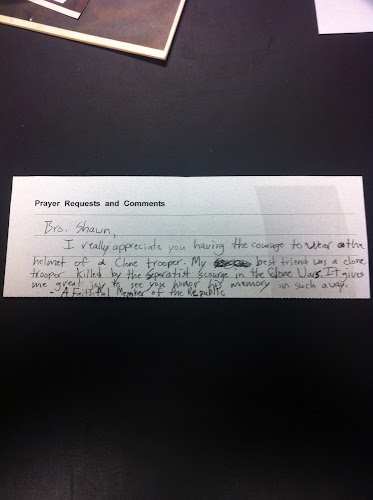 Prayer Requests and Comments
Bro. Shawn,
I really appreciate you having the courage to wear the
helmet of a Clone trooper. My best friend was a clone
trooper killed by the Separatist scourge in the Clone Wars. It gives
me great joy to see you honor his memory in such away.
- A Faithful Member of the Republic